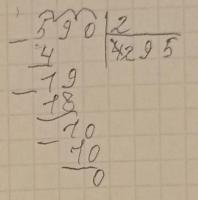 590 | 2
4 | 4295
19
18
10
10
0